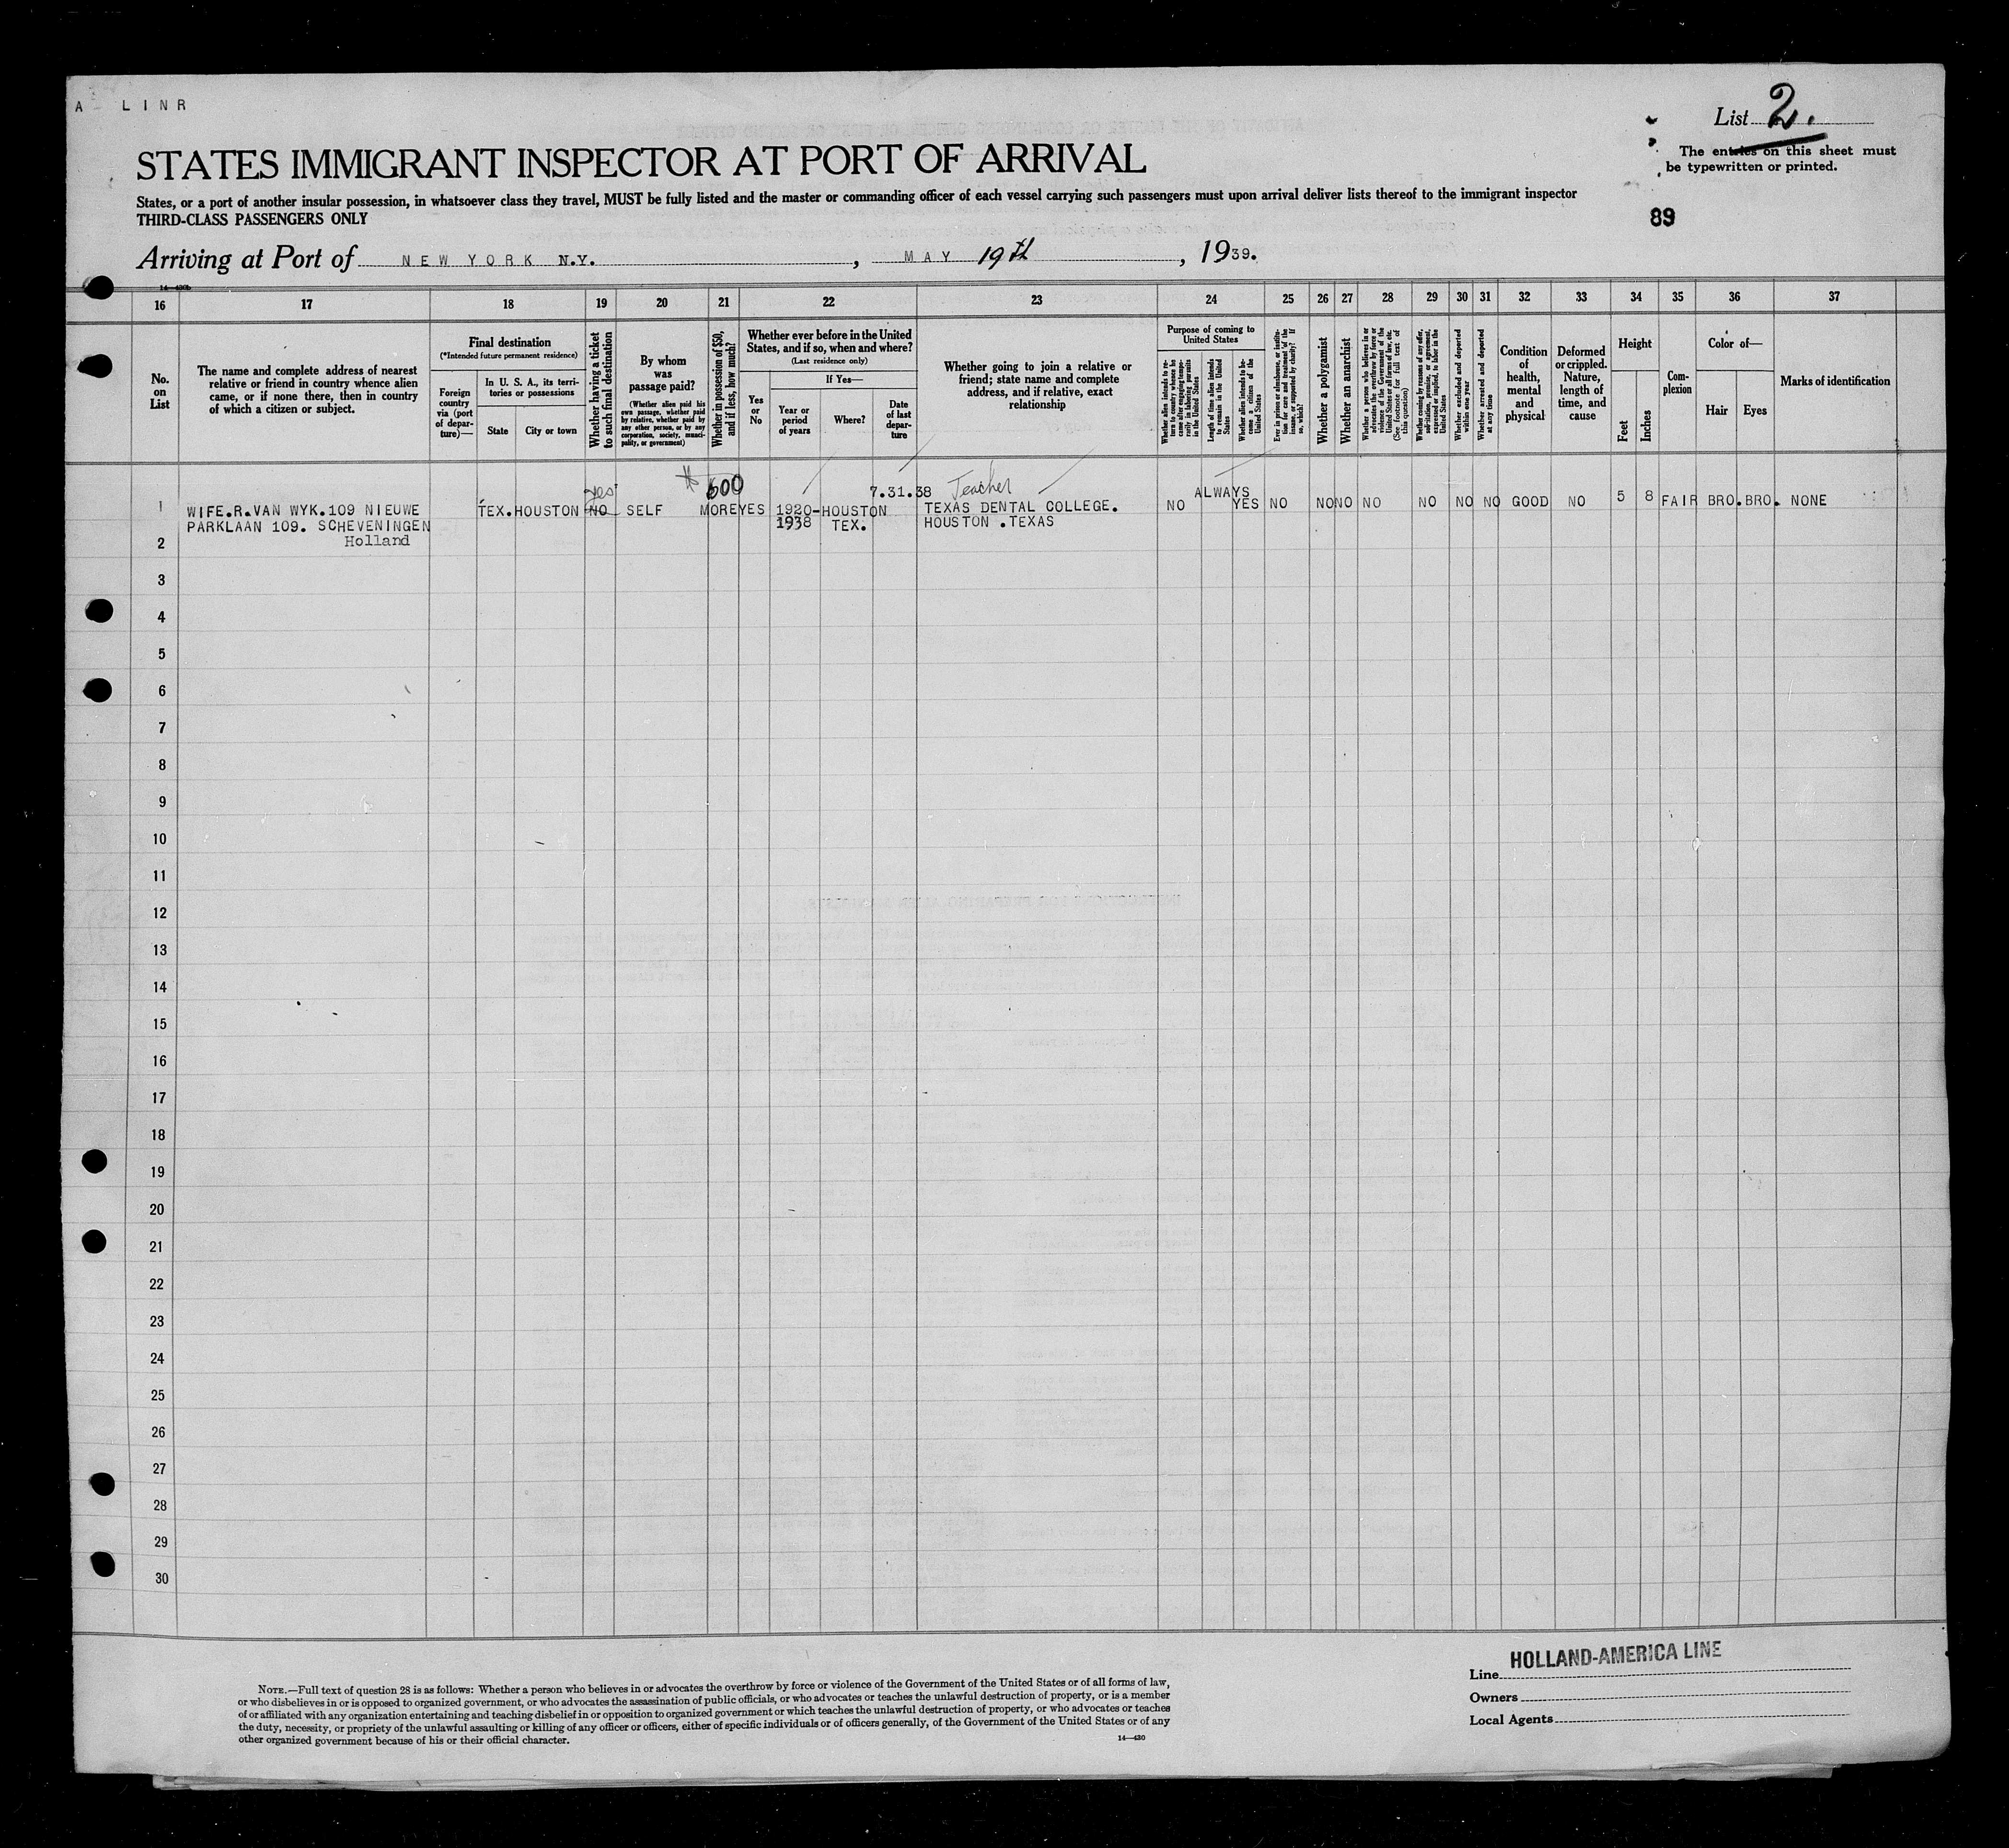 A LINR
List 2.
The entries on this sheet must
be typewritten or printed.
STATES IMMIGRANT INSPECTOR AT PORT OF ARRIVAL
States, or a port of another insular possession, in whatsoever class they travel, MUST be fully listed and the master or commanding officer of each vessel carrying such passengers must upon arrival deliver lists thereof to the immigrant inspector
THIRD-CLASS PASSENGERS ONLY
89
Arriving at Port of NEW YORK N.Y., MAY 19th, 1939.
14—430b
16 17 18 19 20 21 22 23 24 25 26 27 28 29 30 31 32 33 34 35 36 37
No.
on
List
The name and complete address of nearest
relative or friend in country whence alien
came, or if none there, then in country
of which a citizen or subject.
Final destination
(*Intended future permanent residence)
Foreign
country
via (port
of depar-
ture)—
In U. S. A., its terri-
tories or possessions
State
City or town
Whether having a ticket
to such final destination
By whom
was
passage paid?
(Whether alien paid his
own passage, whether paid
by relative, whether paid by
any other person, or by any
corporation, society, munici-
pality, or government)
Whether in possession of $50,
and if less, how much?
Whether ever before in the United
States, and if so, when and where?
(Last residence only)
Yes
or
No
If Yes—
Year or
period
of years
Where?
Date
of last
depar-
ture
Whether going to join a relative or
friend; state name and complete
address, and if relative, exact
relationship
Purpose of coming to
United States
Whether alien intends to re-
turn to country whence he
came after engaging tempo-
rarily in laboring pursuits
in the United States
Length of time alien intends
to remain in the United
States
Whether alien intends to be-
come a citizen of the
United States
Ever in prison or almshouse, or institu-
tion for care and treatment of the
insane, or supported by charity? If
so, which?
Whether a polygamist
Whether an anarchist
Whether a person who believes in or
advocates the overthrow by force or
violence of the Government of the
United States or all forms of law, etc.
(See footnote for full text of
this question)
Whether coming by reasons of any offer,
solicitation, promise, or agreement,
expressed or implied, to labor in the
United States
Whether excluded and deported
within one year
Whether arrested and deported
at any time
Condition
of
health,
mental
and
physical
Deformed
or crippled.
Nature,
length of
time, and
cause
Height
Feet
Inches
Com-
plexion
Color of—
Hair
Eyes
Marks of identification
yes $ 600 7.31.38 Teacher ALWAYS
1 WIFE.R.VAN WYK.109 NIEUWE TEX. HOUSTON NO SELF MORE YES 1920-HOUSTON TEXAS DENTAL COLLEGE. NO YES NO NO NO NO NO NO NO GOOD NO 5 8 FAIR BRO. BRO. NONE
PARKLAAN 109. SCHEVENINGEN 1938 TEX. HOUSTON .TEXAS
2 Holland
3
4
5
6
7
8
9
10
11
12
13
14
15
16
17
18
19
20
21
22
23
24
25
26
27
28
29
30
NOTE.—Full text of question 28 is as follows: Whether a person who believes in or advocates the overthrow by force or violence of the Government of the United States or of all forms of law,
or who disbelieves in or is opposed to organized government, or who advocates the assassination of public officials, or who advocates or teaches the unlawful destruction of property, or is a member
of or affiliated with any organization entertaining and teaching disbelief in or opposition to organized government or which teaches the unlawful destruction of property, or who advocates or teaches
the duty, necessity, or propriety of the unlawful assaulting or killing of any officer or officers, either of specific individuals or of officers generally, of the Government of the United States or of any
other organized government because of his or their official character.
14—430
HOLLAND-AMERICA LINE
Line
Owners
Local Agents